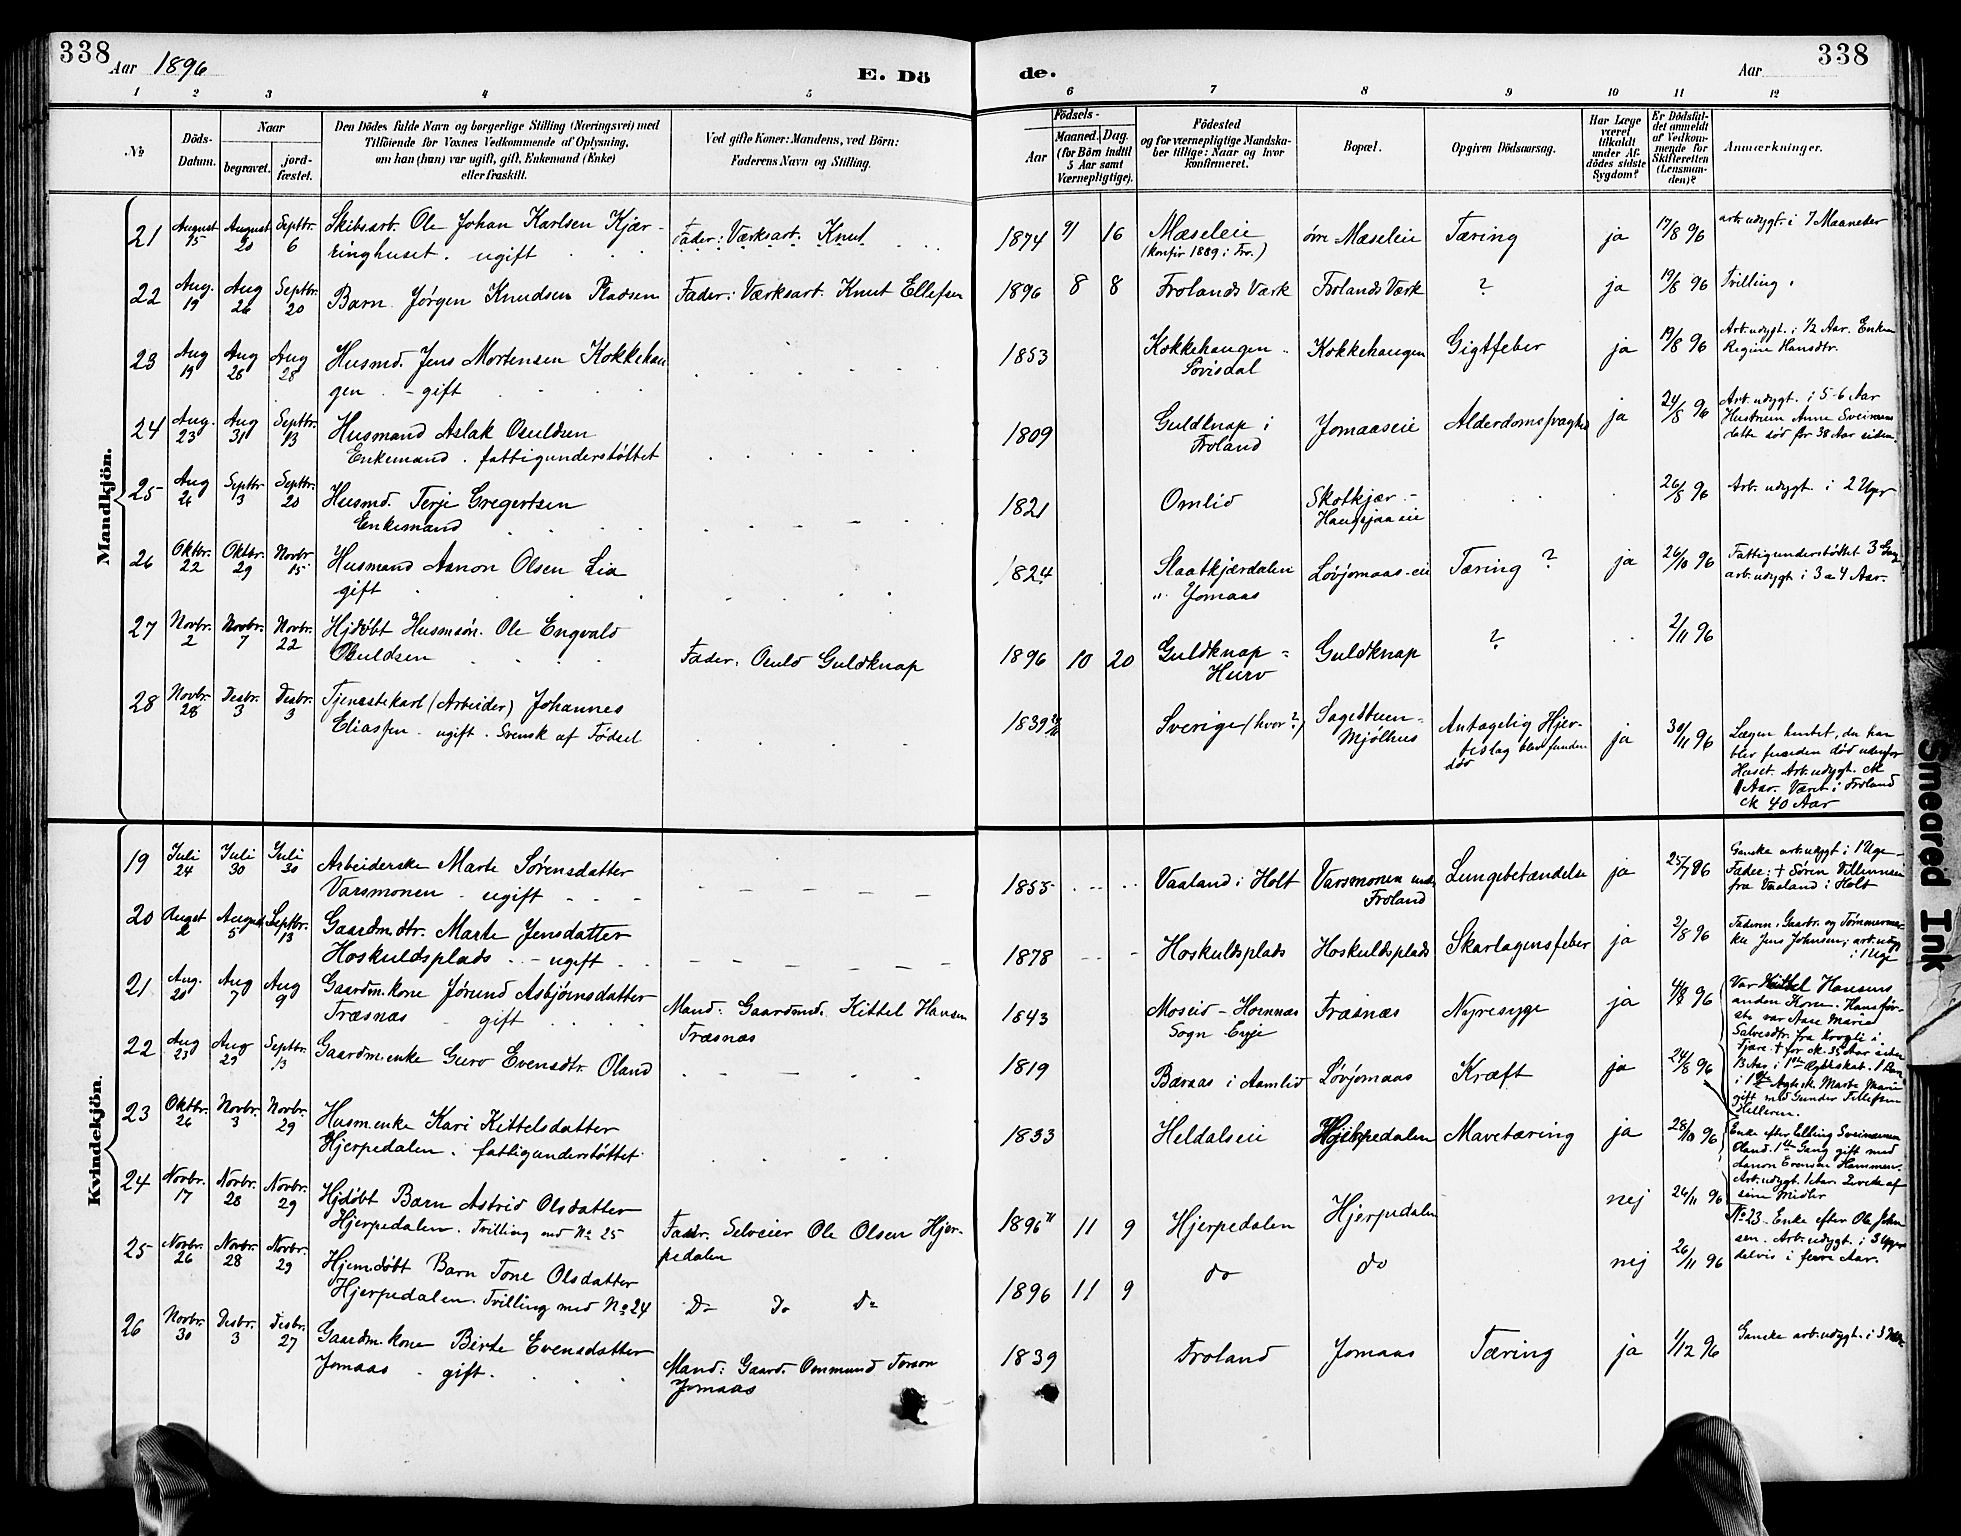 338
Aar 1896
E. Dö
de.
Aar
338
1 2 3 4 5 6 7 8 9 10 11 12
№
Döds-
Datum.
Naar
begravet.
jord-
fæstet.
Den Dödes fulde Navn og borgerlige Stilling (Næringsvei) med
Tilföiende for Voxnes Vedkommende af Oplysning,
om han (hun) var ugift, gift, Enkemand (Enke)
eller fraskilt.
Ved gifte Koner: Mandens, ved Börn:
Faderens Navn og Stilling.
Födsels-
Aar
Maaned. Dag.
(for Börn indtil
5 Aar samt
Værnepligtige).
Födested
og for værnepligtige Mandska-
ber tillige: Naar og hvor
konfirmeret.
Bopæl.
Opgiven Dödsaarsag.
Har Læge
været
tilkaldt
under Af-
dödes sidste
Sygdom?
Er Dödsfal-
det anmeldt
af Vedkom-
mende for
Skifteretten
(Lensman-
den)?
Anmærkninger.
Mandkjön.
21 August 15 August 20 Septbr. 6 Skibsarb. Ole Johan Karlsen Kjær-
ringhuset. ugift Fader: Værksarb. Knut 1874 9 16 Mæseleie
(konfir 1889 i Fro.) øvre Mæseleie Tæring ja 17/8 96 arb. udygt. i 7 Maaneder
22 Aug. 19 Aug 26 Septbr. 20 Barn Jørgen Knudsen Pladsen Fader: Værksarb. Knut Ellefsen 1896 8 8 Frolands Værk Frolands Værk ? ja 19/8 96 Trilling
23 Aug 19 Aug 26 Aug 28 Husmd. Jens Mortensen Kokkehau
gen. - gift 1853 Kokkehaugen
Sövisdal Kokkehaugen Gigtfeber ja 19/8 96 Arb. udygt. i 1/2 Aar. Enken
Regine Hansdtr.
24 Aug. 23 Aug 31 Septbr. 13 Husmand Aslak Osuldsen
Enkemand. fattigunderstøttet 1809 Guldknap i
Froland Jomaaseie Alderdomssvaghed ja 24/8 96 Arb. udygt. i 5-6 Aar
Hustruen Anne
datter død for 38 Aar siden.
25 Aug 26 Septbr 3 Septbr. 20 Husmd. Terje Gregertsen
Enkemand 1821 Omlid Skotkjær -
Haugsjaaeie 26/8 96 Arb. udygt. i 2 Uger
26 Oktbr. 22 Oktbr. 29 Novbr. 15 Husmand Aanon Olsen Lia
gift 1824 Slaatkjærdalen
" Jomaas Løvjomaas-eie Tæring ? ja 26/10 96 Fattigunderstøttet 3 Gange
arb. udygt i 3 a 4 Aar.
27 Novbr. 2 Novbr. 7 Novbr. 22 Hjdøbt Husmsön. Ole Engvald
Osuldsen Fader: Osuld Guldknap 1896 10 20 Guldknap =
Hurv Guldknap ? 2/11 96
28 Novbr. 28 Desbr. 3 Desbr. 3 Tjenestekarl (Arbeider) Johannes
Eliassen. ugift. Svensk af Fødsel 1839 Sverige (hvor?) Sagestuen =
Mjølhus Antagelig Hjer-
teslag blev funden
død ja 30/11 96 Lægen hentet, da han
blev funden død udenfor
Huset. Arb. udygt. ck
1 Aar. Været i Froland
ck 40 Aar
Kvindekjön.
19 Juli 24 Juli 30 Juli 30 Arbeiderske Marte Sørensdatter
Varsmonen. ugift 1855 Vaaland i Holt Varsmonen under
Froland Lungebetændelse ja 25/7 96 Ganske arb. udygt i 1 Uge -
Fader: + Søren
fra Vaaland i Holt
20 August 2 August 5 Septbr. 13 Gaardm. dtr. Marte Jensdatter
Hoskuldsplads. - ugift 1878 Hoskuldsplads Hoskuldsplads Skarlagensfeber ja 2/8 96 Faderen: Gaardbr. og Tømmermær-
ker Jens Johnsen; arb. udyg.
i 1 Uge
21 Aug. 20 Aug 7 Aug 9 Gaardm. kone Jørund Asbjørnsdatter
Træsnæs - gift Mand: Gaardmd. Kittel Hansen
Træsnæs 1843 Moseid - Hornnæs
Sogn - Evje Træsnæs Nyresyge ja 4/8 96 Var Kittel Hansens
anden Kone. Hans før-
ste var Aase Marie
Salvesdtr. fra Krogli i
Tjøre. + for ck. 35 Aar siden
1 Barn
i 1ste Ægtesk. Marte Marie
gift med Gunder Tellefsen
Helleren.
22 Aug 23 Aug 29 Septbr. 13 Gaardm. enke Guro Evensdtr. Oland 1819 Baraas i Aamlid Løvjomaas Kræft ja 24/8 96 Enke efter Elling
Oland. 1ste Gang gift med
Aanon Evensen Hammen.
Arb. udygt. 1 Aar. Levede af
sine Midler
23 Oktbr. 26 Novbr. 3 Novbr. 29 Husm. enke Kari Kittelsdatter
Hjerpedalen. fattigunderstøttet 1833 Heldalseie Hjerpedalen Mavetæring ja 28/10 96 No 23 - Enke efter Ole John
sen. Arb. udygt. i 3 Uger
delvis i flere Aar.
24 Novbr. 17 Novbr. 28 Novbr. 29 Hjdøbt Barn Astrid Olsdatter
Hjerpedalen. Tvilling med No 25 Fader. Selveier Ole Olsen Hjer-
pedalen 1896 11 9 Hjerpedalen Hjerpedalen nej 26/11 96
25 Novbr. 26 Novbr. 28 Novbr. 29 Hjemdøbt Barn Tone Olsdatter
Hjerpedalen. Tvilling med No 24 Do Do Do 1896 11 9 do do nej 26/11 96
26 Novbr. 30 Desbr. 3 Desbr. 27 Gaardm. kone Birte Evensdatter
Jomaas - gift. Mand: Gaard. Ommund Torson
Jomaas 1839 Froland Jomaas Tæring ja 1/12 96 Ganske arb. udygt. i 3
Smeared Ink